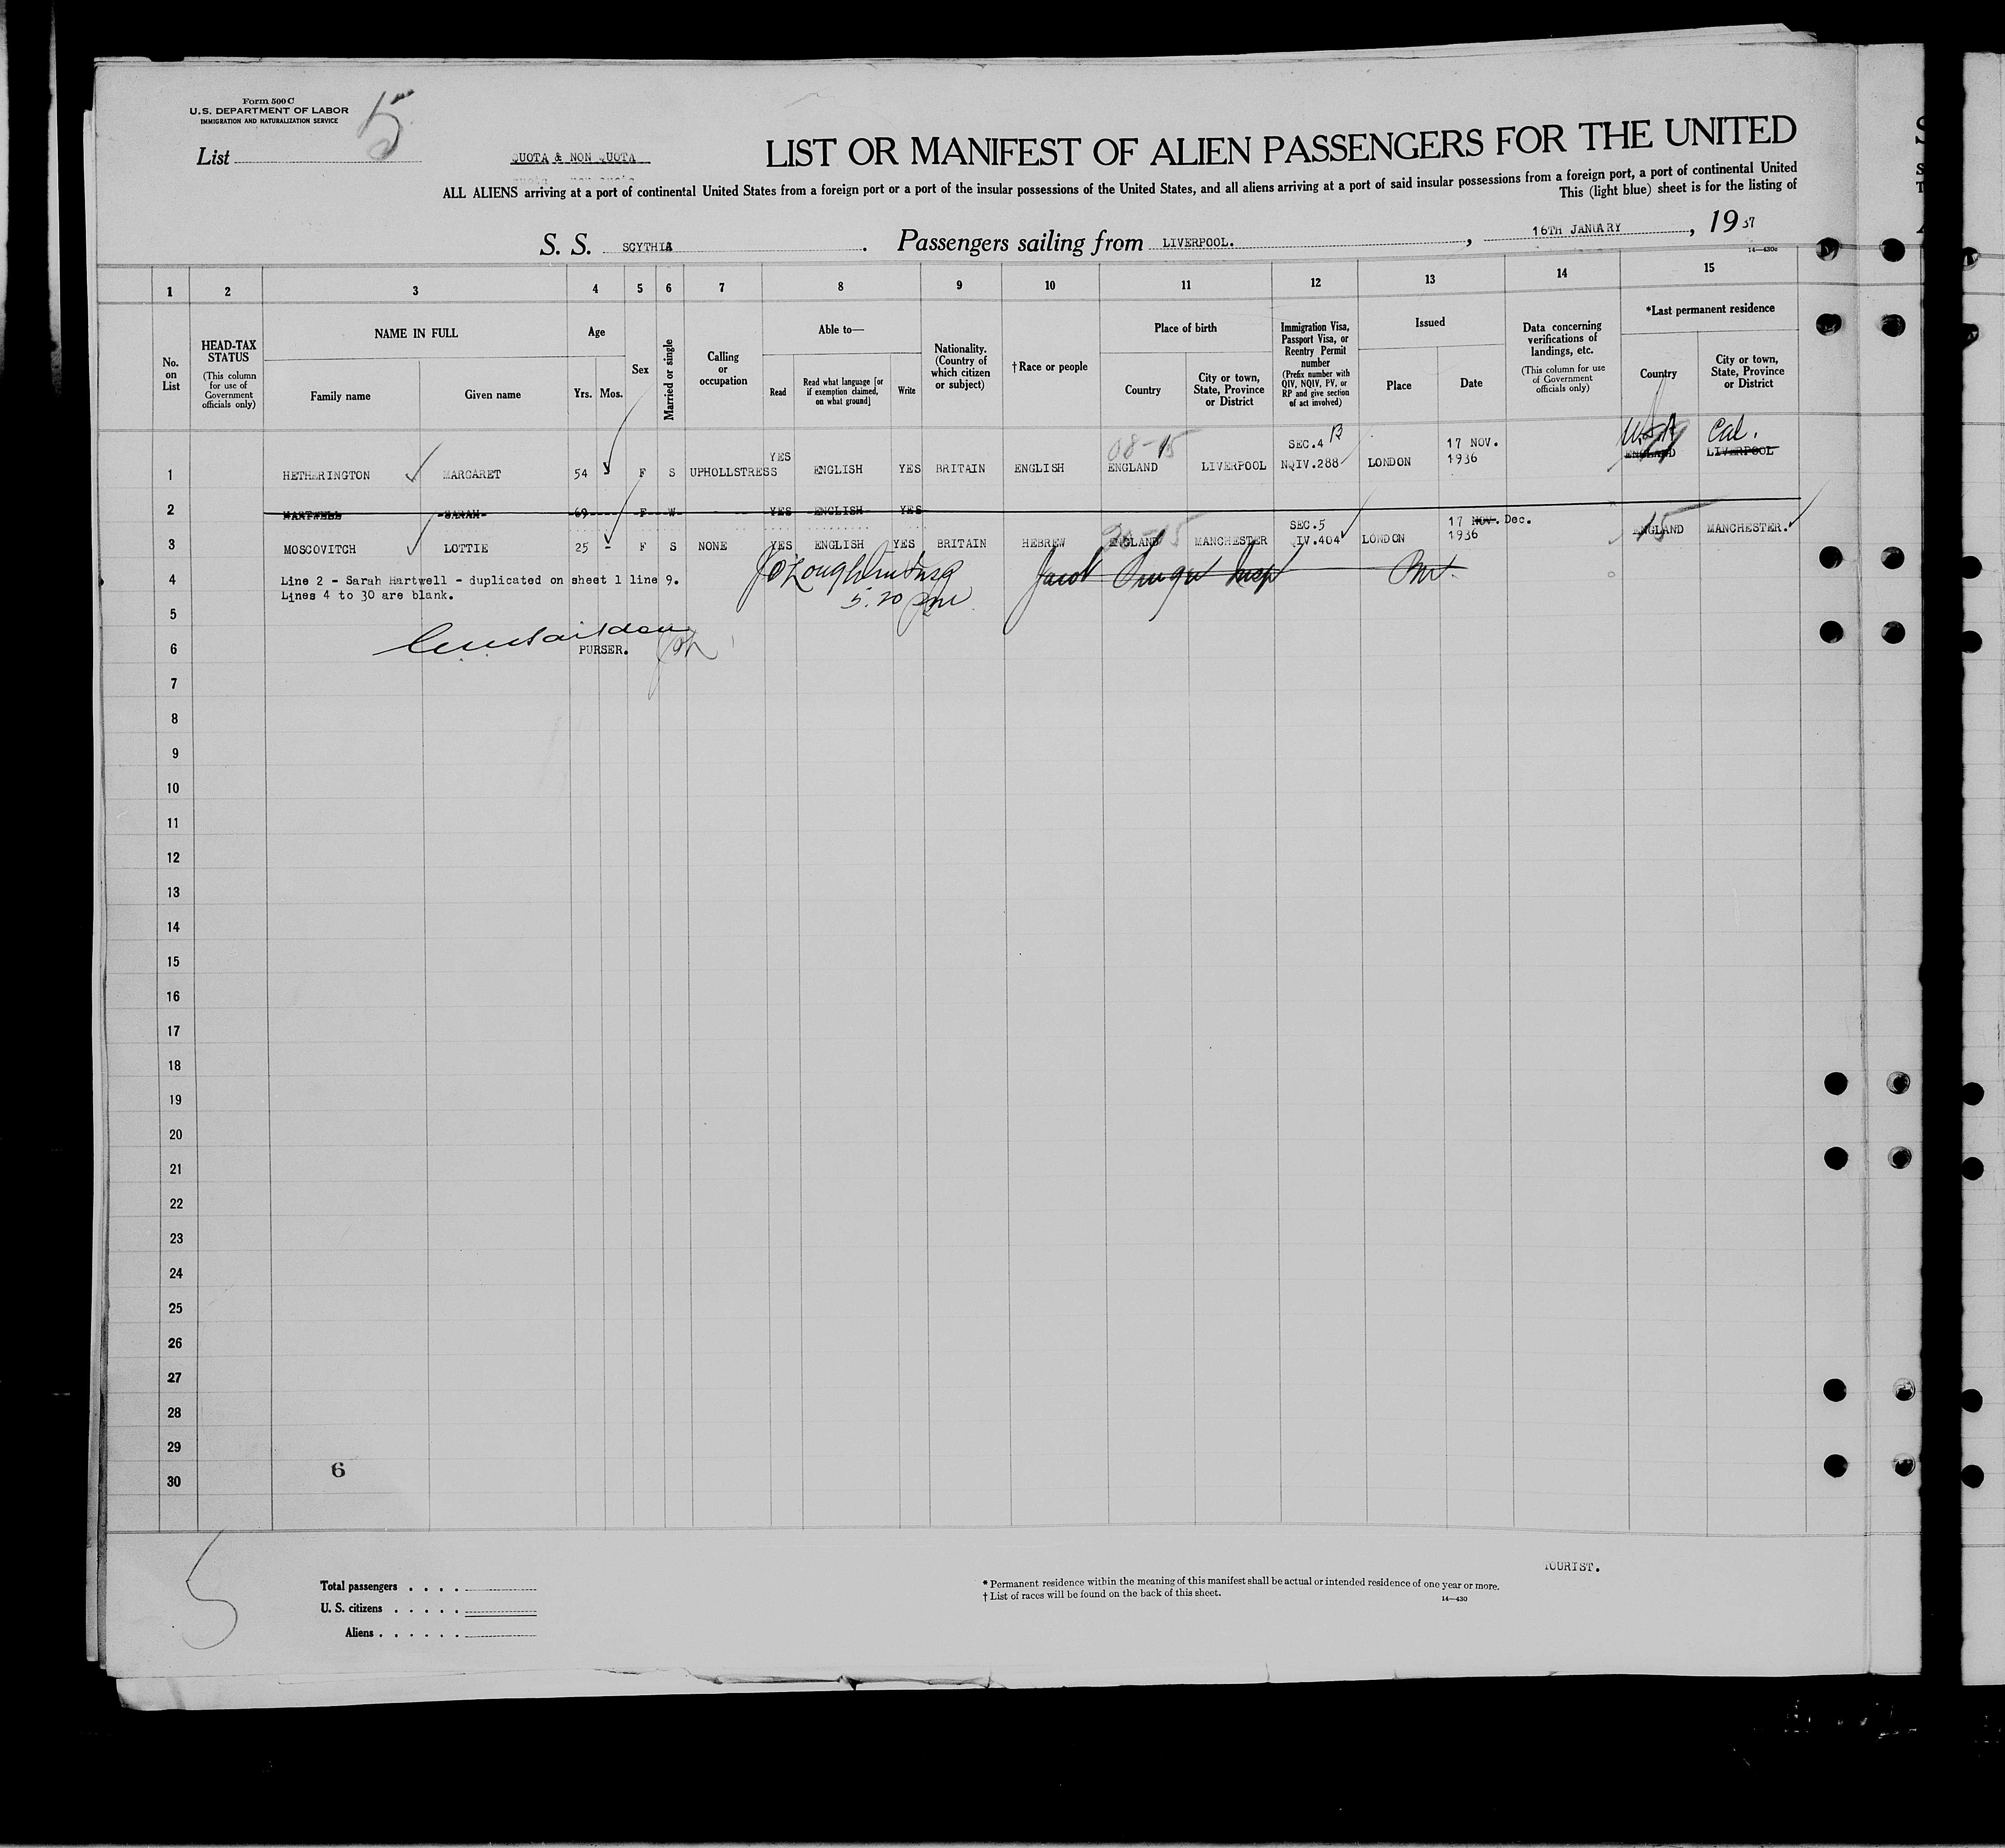 Form 500 C
U.S. DEPARTMENT OF LABOR
IMMIGRATION AND NATURALIZATION SERVICE
5
List
QUOTA & NON QUOTA
LIST OR MANIFEST OF ALIEN PASSENGERS FOR THE UNITED
ALL ALIENS arriving at a port of continental United States from a foreign port or a port of the insular possessions of the United States, and all aliens arriving at a port of said insular possessions from a foreign port, a port of continental United
This (light blue) sheet is for the listing of
S. S. SCYTHIA. Passengers sailing from LIVERPOOL., 16TH JANUARY, 19 37
14—430c
1 2 3 4 5 6 7 8 9 10 11 12 13 14 15
No. on List
HEAD-TAX STATUS (This column for use of Government officials only)
NAME IN FULL
Family name Given name
Age
Yrs. Mos.
Sex
Married or single
Calling or occupation
Able to—
Read
Read what language [or if exemption claimed, on what ground]
Write
Nationality. (Country of which citizen or subject)
† Race or people
Place of birth
Country
City or town, State, Province or District
Immigration Visa, Passport Visa, or Reentry Permit number (Prefix number with QIV, NQIV, PV, or RP and give section of act involved)
Issued
Place Date
Data concerning verifications of landings, etc. (This column for use of Government officials only)
*Last permanent residence
Country
City or town, State, Province or District
08-15 SEC.4 B 17 NOV. U.S.A Cal.
1 HETHERINGTON MARGARET 54 F S UPHOLLSTRESS YES ENGLISH YES BRITAIN ENGLISH ENGLAND LIVERPOOL NQIV.288 LONDON 1936 ENGLAND LIVERPOOL
2 HARTWELL SARAH 69 F W YES ENGLISH YES
SEC.5 17 NOV. Dec.
3 MOSCOVITCH LOTTIE 25 - F S NONE YES ENGLISH YES BRITAIN HEBREW ENGLAND MANCHESTER QIV.404 LONDON 1936 ENGLAND 15 MANCHESTER.
4 Line 2 - Sarah Hartwell - duplicated on sheet 1 line 9.
Lines 4 to 30 are blank.
5.20 pm
5
6 PURSER.
7
8
9
10
11
12
13
14
15
16
17
18
19
20
21
22
23
24
25
26
27
28
29
30
6
5
TOURIST.
Total passengers . . . .
U. S. citizens . . . . .
Aliens . . . . . .
* Permanent residence within the meaning of this manifest shall be actual or intended residence of one year or more.
† List of races will be found on the back of this sheet.
14—430